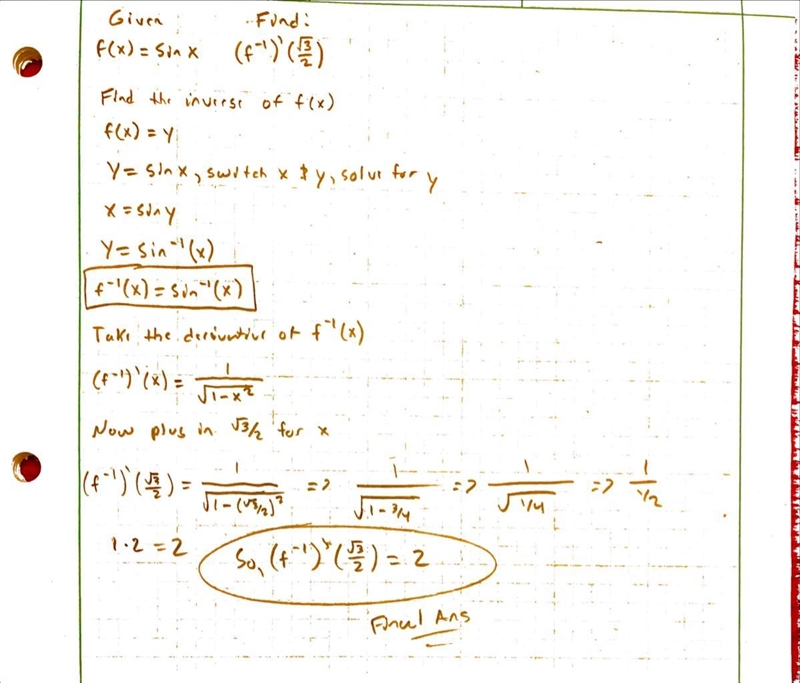 Given Find:
f(x) = sin x (f⁻¹)'(√3/2)
Find the inverse of f(x)
f(x) = y
y = sin x, switch x & y, solve for y
x = sin y
y = sin⁻¹(x)
f⁻¹(x) = sin⁻¹(x)
Take the derivative of f⁻¹(x)
(f⁻¹)'(x) = 1/√(1-x²)
Now plug in √3/2 for x
(f⁻¹)'(√3/2) = 1/√(1-(√3/2)²) => 1/√(1-3/4) => 1/√(1/4) => 1/(1/2)
1·2 = 2 So, (f⁻¹)'(√3/2) = 2
Final Ans